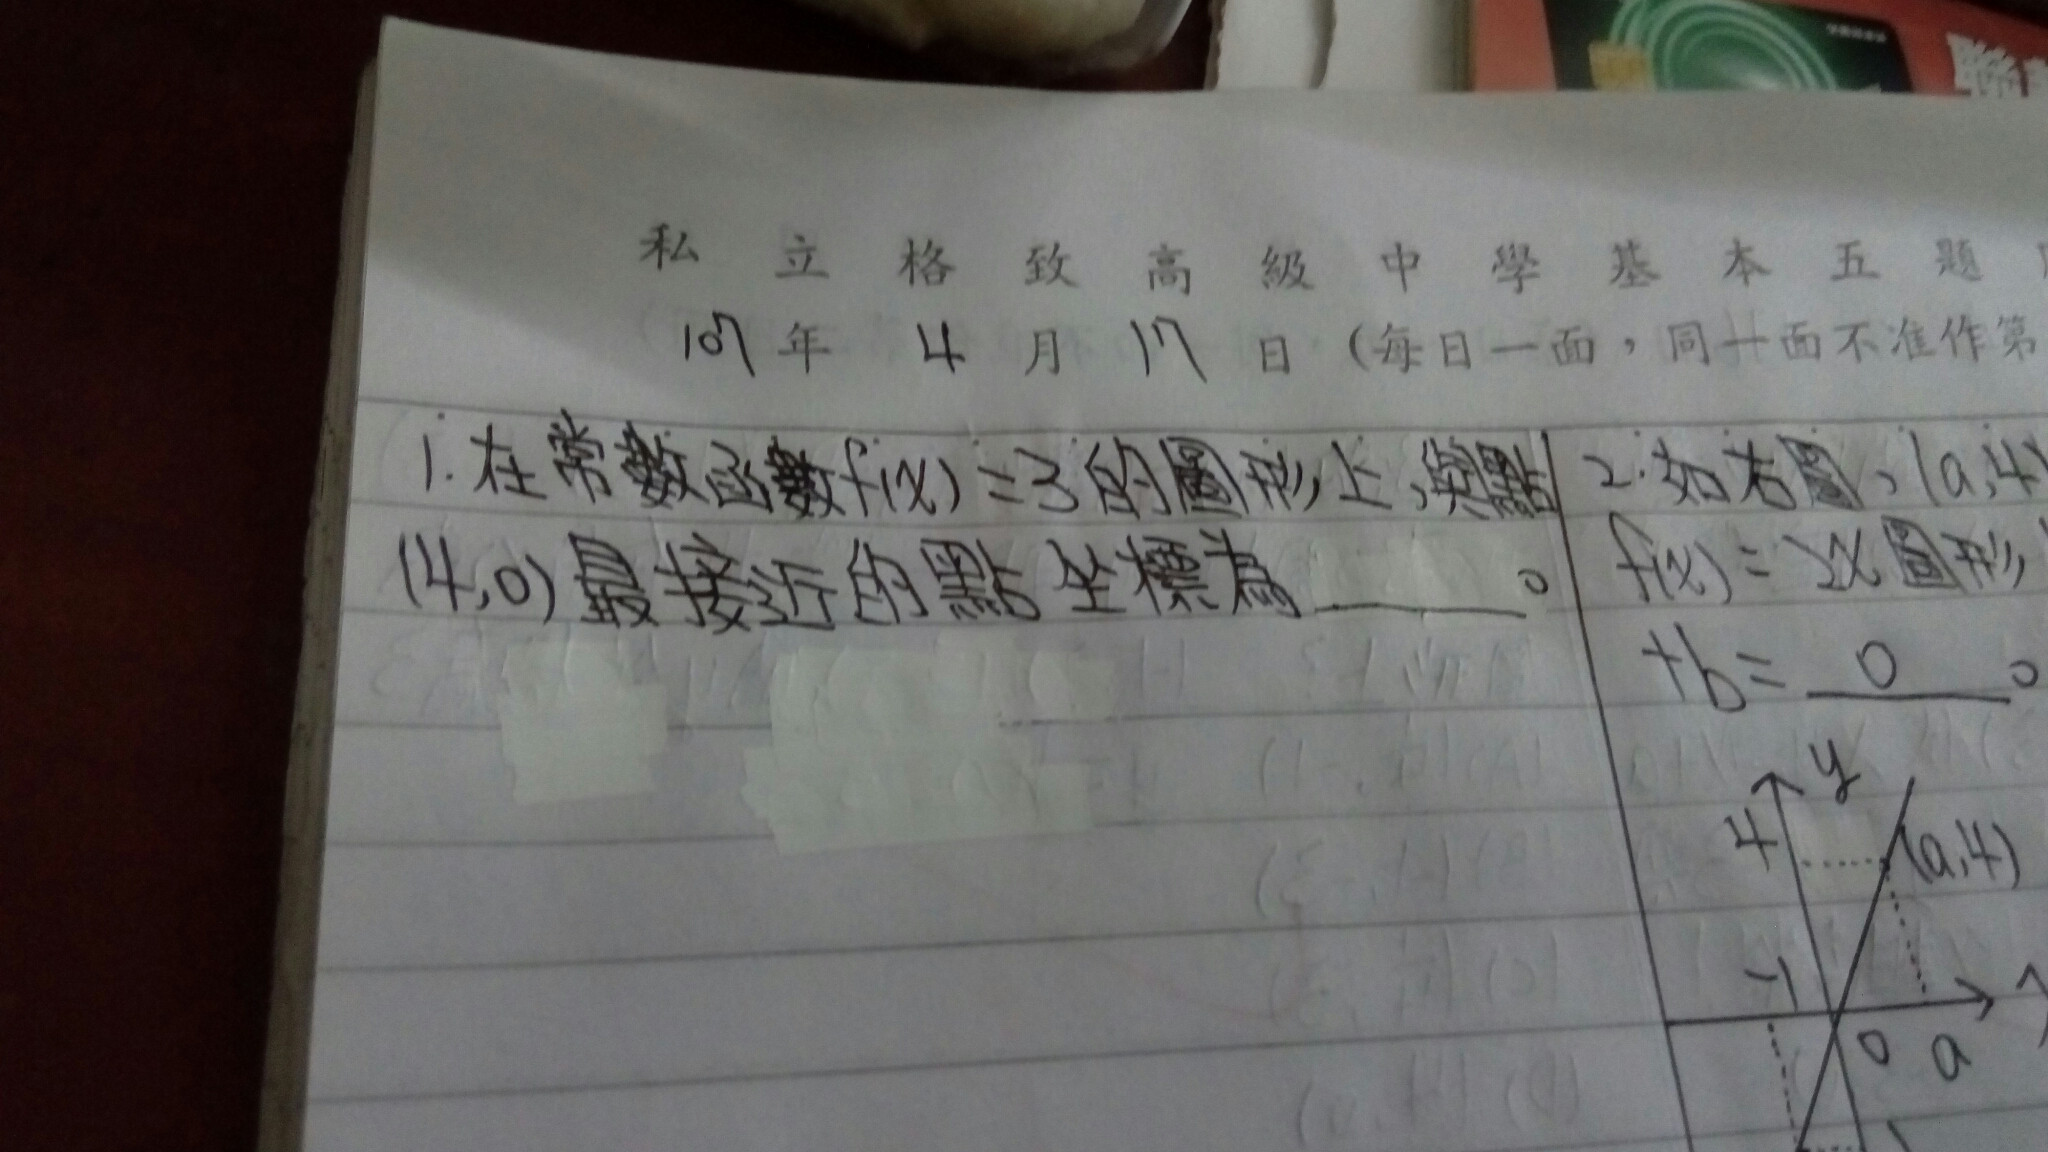 私立格致高級中學基本五題
107年4月17日(每日一面，同一面不准作第
1.在常數函數f(x)=3的圖形上，與點
(4,0)最接近的點坐標為______。
2.如右圖，(a,4)
f(x)=2x圖形
+b=0。
y
4
(a,4)
-1
0
a